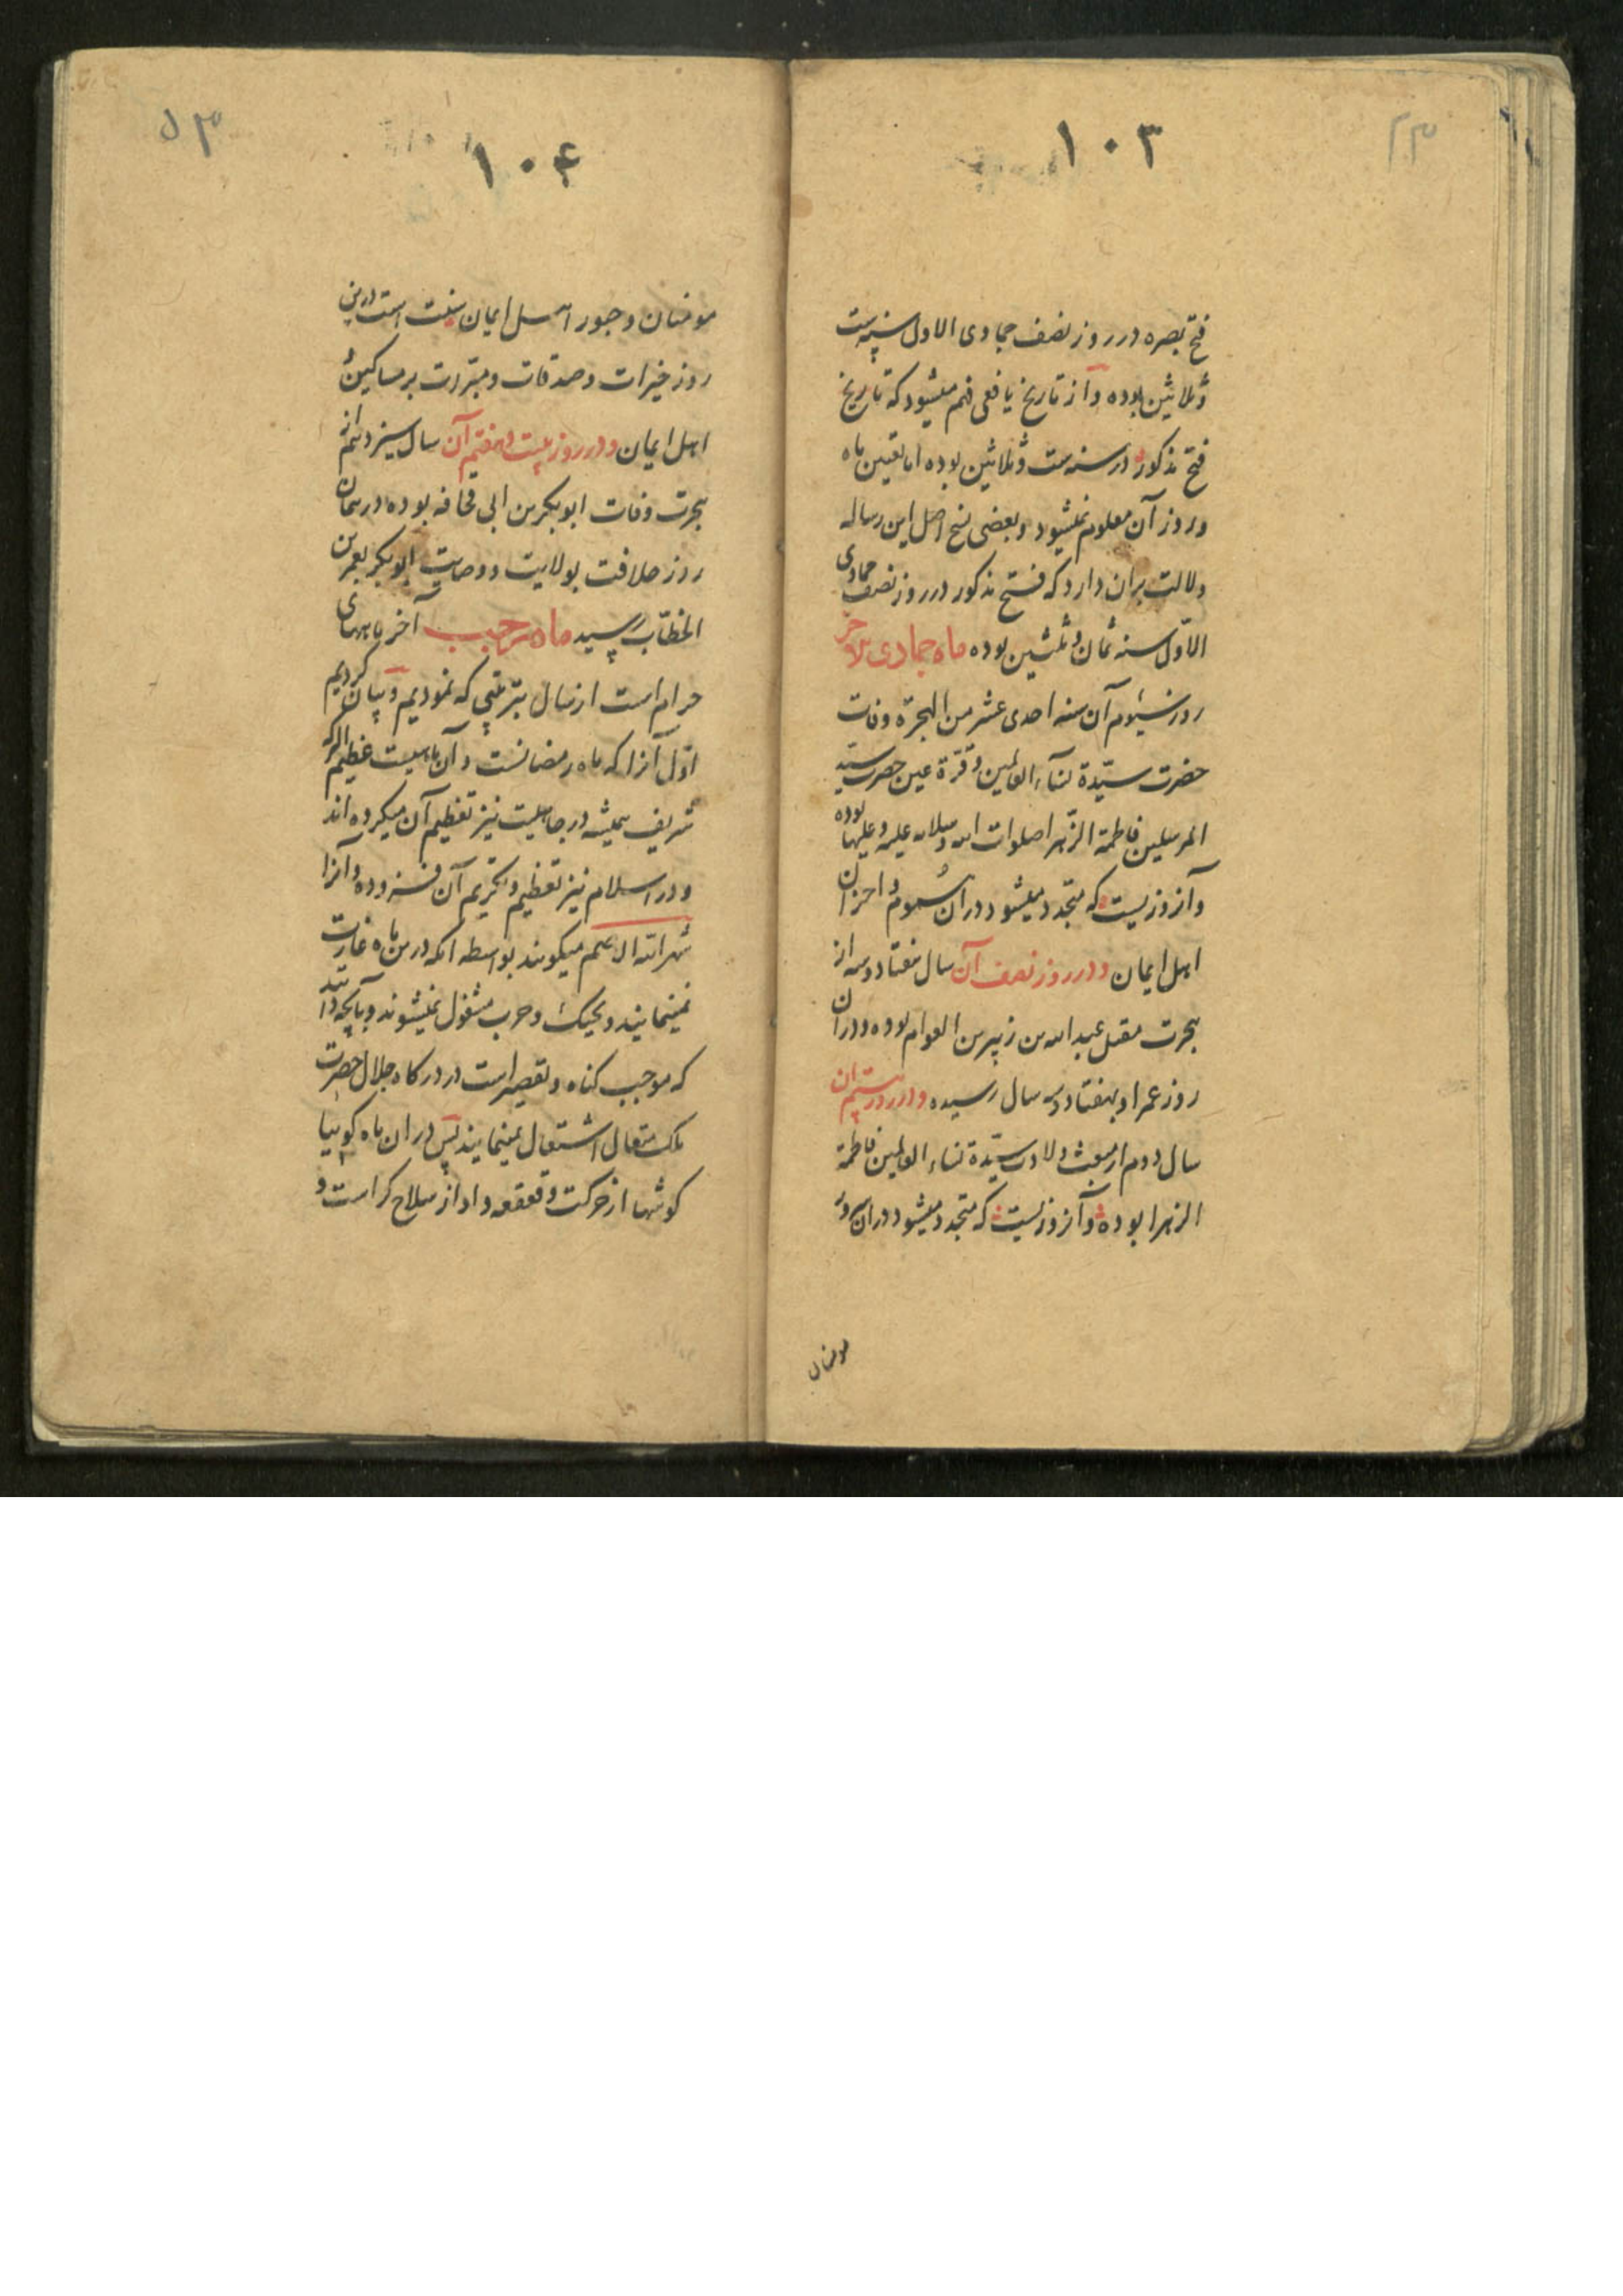 ۱۰۳
فتح بصره در روز نصف جمادی الاول سنه ست
و ثلاثین بوده و از تاریخ یافعی فهم میشود که تاریخ
فتح مذکور در سنه ست و ثلاثین بوده اما تعیین ماه
و روز آن معلوم نمیشود و بعضی نسخ اصل این رساله
دلالت بران دارد که فتح مذکور در روز نصف جمادی
الاول سنه ثمان و ثلثین بوده ماه جمادی الاخر
روز سیوم آن سنه احدی عشر من الهجرة وفات
حضرت سیّدة نساء العالمین و قرّة عین حضرت سیّد
المرسلین فاطمة الزّهرا صلوات الله و سلامه علیه و علیها بوده
و آنروزیست که متجدد میشود دران هموم و احزان
اهل ایمان و در روز نصف آن سال هفتاد و سه از
هجرت مقتل عبد الله بن زبیر بن العوام بوده و در آن
روز عمر او بهفتاد و سه سال رسیده و در روز بیستم آن
سال دوم از مبعث ولادت سیّدة نساء العالمین فاطمة
الزهرا بوده و آنروزیست که متجدد میشود دران سرور
مومنان
۱۰۴
مومنان و حبور اهل ایمان سنت است درین
روز خیرات و صدقات و مبترات بر مساکین
اهل ایمان و در روز بیست و هفتم آن سال سیزدهم از
هجرت وفات ابوبکر بن ابی قحافه بوده در همان
روز خلافت بولایت و وصایت ابوبکر بعمر بن
الخطّاب رسید ماه رجب آخر ماههای
حرام است از سال بترتیبی که نمودیم و بیان کردیم
اوّل آنرا که ماه رمضانست و آن ماهیست عظیم البرکه
شریف همیشه در جاهلیت نیز تعظیم آن میکرده اند
و در اسلام نیز تعظیم و تکریم آن فزوده و آنرا
شهر الله الاصم میکویند بواسطه انکه درین ماه غارت
نمینمایند و بجنک و حرب مشغول نمیشوند و بآنچه دانند
که موجب کناه و تقصیر است در درکاه جلال حضرت
ملک متعال اشتغال نمینمایند پس در ان ماه کوییا
کوشها از حرکت و قعقعه و اواز سلاح کر است و